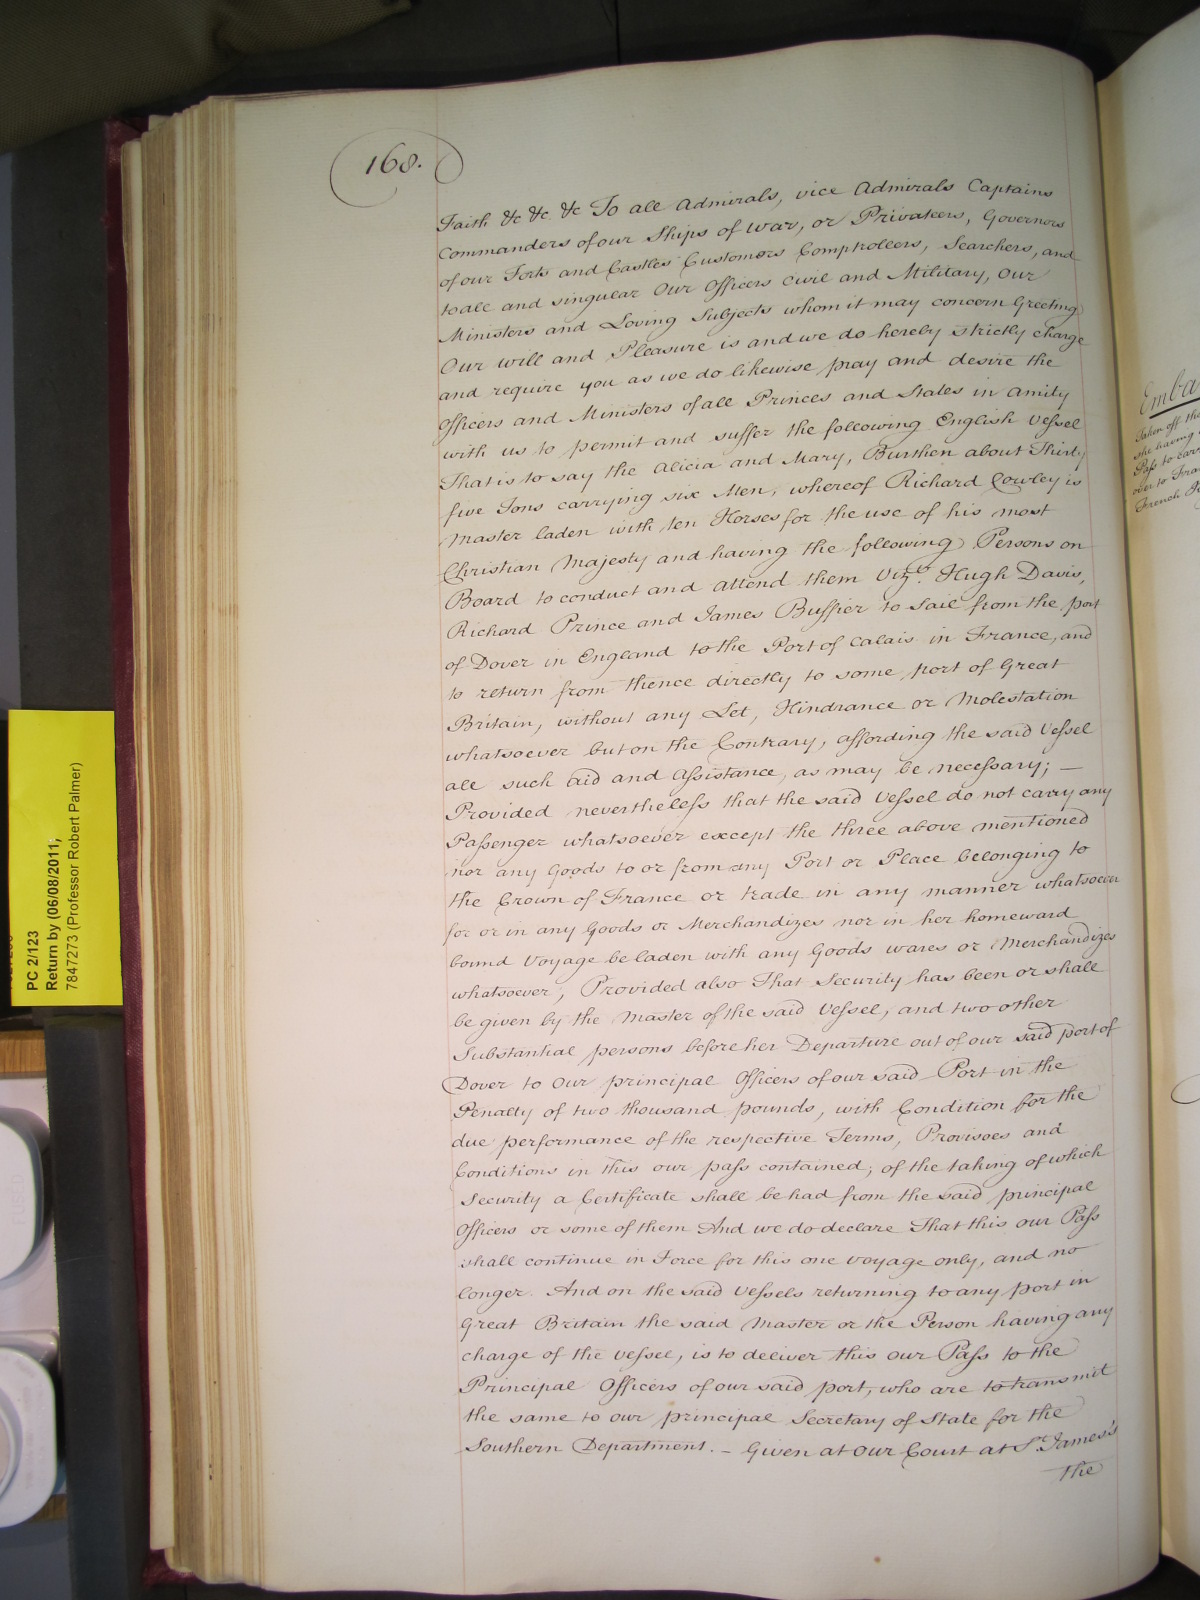 168.
Faith &c &c &c To all Admirals, vice Admirals Captains
Commanders of our Ships of War, or Privateers, Governors
of our Forts and Castles Customers Comptrollers, Searchers, and
to all and singular Our Officers Civil and Military, Our
Ministers and Loving Subjects whom it may concern Greeting
Our Will and Pleasure is and we do hereby strictly charge
and require you as we do likewise pray and desire the
Officers and Ministers of all Princes and States in Amity
with us to permit and suffer the following English Vessel
That is to say the Alicia and Mary, Burthen about Thirty
five Tons carrying six Men, whereof Richard Cowley is
Master laden with ten Horses for the use of his most
Christian Majesty and having the following Persons on
Board to conduct and attend them Vizt. Hugh Davis,
Richard Prince and James Buffier to Sail from the port
of Dover in England to the Port of Calais in France, and
to return from thence directly to some port of Great
Britain, without any Let, Hindrance or Molestation
whatsoever but on the Contrary, affording the said Vessel
all such aid and Assistance, as may be necessary; —
Provided nevertheless that the said Vessel do not carry any
Passenger whatsoever except the three above mentioned
nor any Goods to or from any Port or Place belonging to
the Crown of France or trade in any manner whatsoever
for or in any Goods or Merchandizes nor in her homeward
bound Voyage be laden with any Goods wares or Merchandizes
whatsoever; Provided also That Security has been or shall
be given by the Master of the said Vessel, and two other
Substantial persons before her Departure out of our said port of
Dover to our principal Officers of our said Port in the
Penalty of two thousand pounds, with Condition for the
due performance of the respective Terms, Provisoes and
Conditions in this our pass contained; of the taking of which
Security a Certificate shall be had from the said principal
Officers or some of them And we do declare That this our Pass
shall continue in Force for this one voyage only, and no
longer. And on the said Vessels returning to any port in
Great Britain the said Master or the Person having any
charge of the Vessel, is to deliver this our Pass to the
Principal Officers of our said port, who are to transmit
the same to our principal Secretary of State for the
Southern Department. – Given at Our Court at St. James's
the
Taken off the
she having
Pass to carr
over to Fra
PC 2/123
Return by (06/08/2011;
7847273 (Professor Robert Palmer)